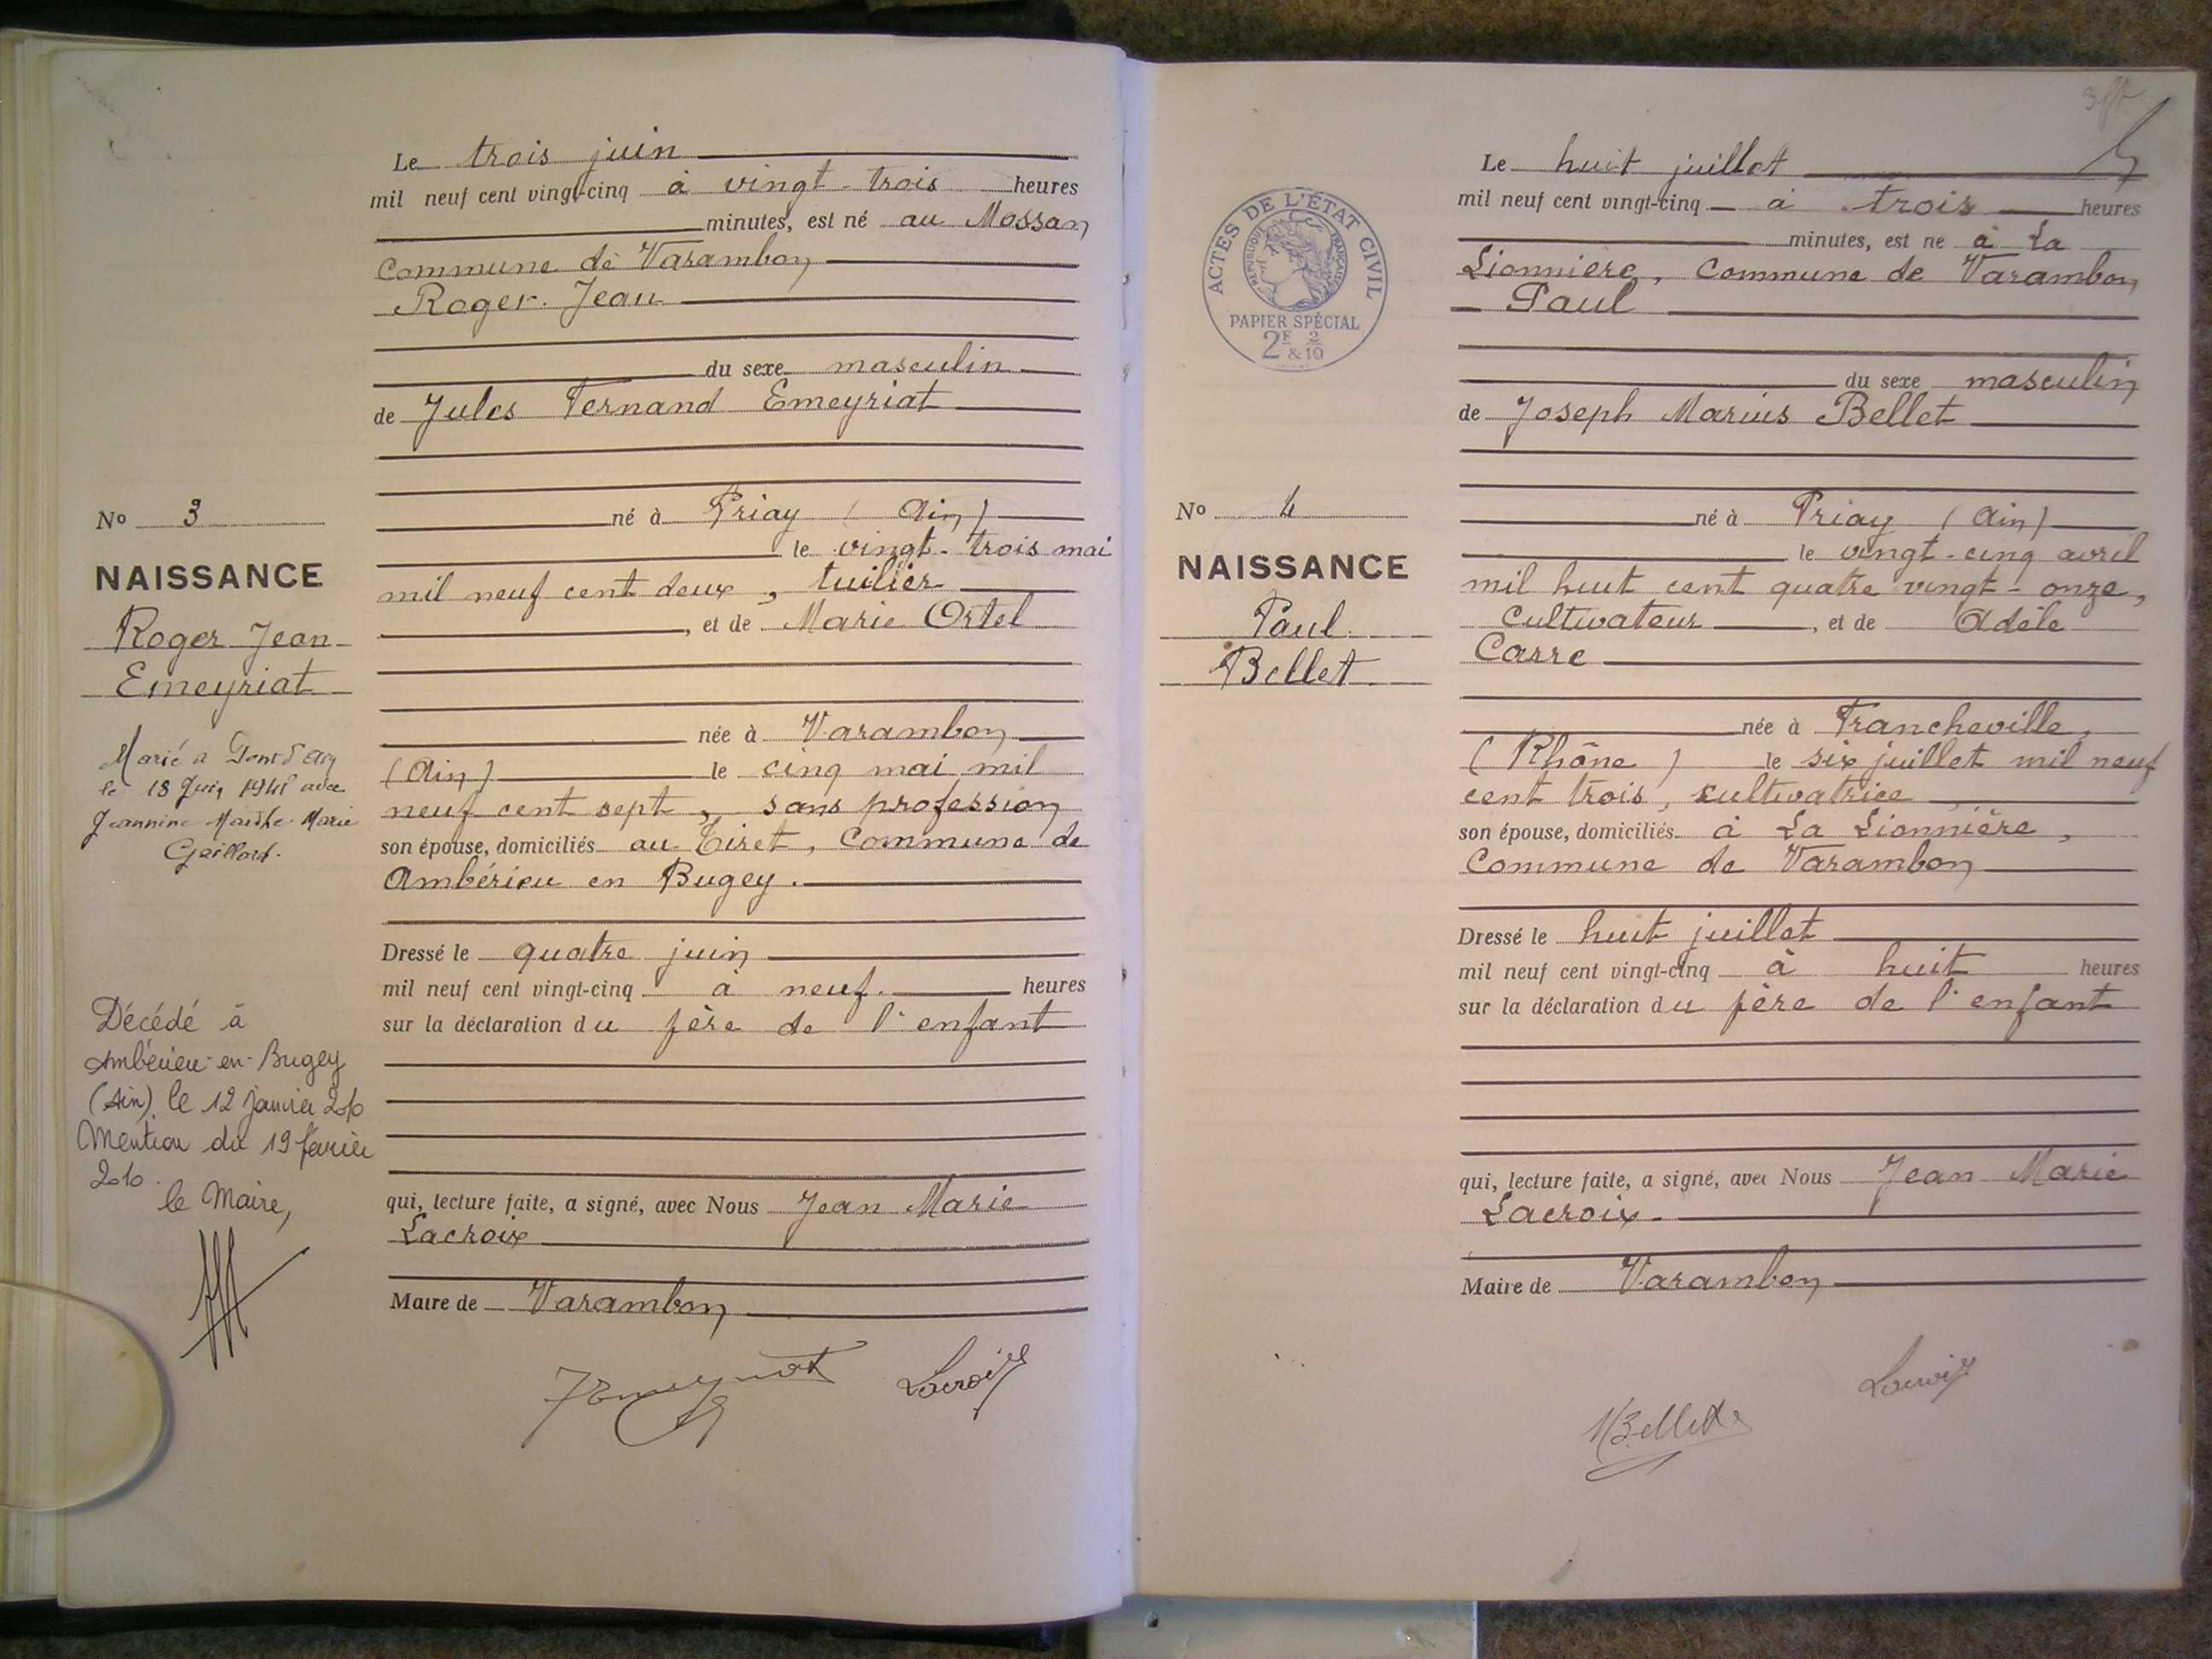 Le trois juin
mil neuf cent vingt-cinq à vingt-trois heures
minutes, est né au Mossan
Commune de Varambon
Roger Jean
du sexe masculin
de Jules Fernand Emeyriat
né à Priay (Ain)
le vingt-trois mai
mil neuf cent deux, tuilier
, et de Marie Ortel
née à Varambon
(Ain) le cinq mai mil
neuf cent sept, sans profession
son épouse, domiciliés au Tiret, Commune de
Ambérieu en Bugey.
Dressé le quatre juin
mil neuf cent vingt-cinq à neuf heures
sur la déclaration du père de l'enfant
qui, lecture faite, a signé, avec Nous Jean Marie
Lacroix
Maire de Varambon
Lacroix
No 3
NAISSANCE
Roger Jean
Emeyriat
Marié a Pont d'Ain
le 18 Juin avec
Jeannine Marthe Marie
Gaillard.
Décédé à
Ambérieu-en-Bugey
(Ain) le 12 janvier 2010
Mention du 19 février
2010.
le Maire,
Le huit juillet
mil neuf cent vingt-cinq à trois heures
minutes, est né à La
Lionnière, Commune de Varambon
Paul
du sexe masculin
de Joseph Marius Bellet
né à Priay (Ain)
le vingt-cinq avril
mil huit cent quatre vingt-onze,
cultivateur, et de Adèle
Carre
née à Francheville,
(Rhône) le six juillet mil neuf
cent trois, cultivatrice
son épouse, domiciliés à La Lionnière,
Commune de Varambon
Dressé le huit juillet
mil neuf cent vingt-cinq à huit heures
sur la déclaration du père de l'enfant
qui, lecture faite, a signé, avec Nous Jean Marie
Lacroix
Maire de Varambon
Lacroix
Bellet
No 4
NAISSANCE
Paul
Bellet
ACTES DE L'ÉTAT CIVIL
RÉPUBLIQUE FRANÇAISE
PAPIER SPÉCIAL
2F & 2/10